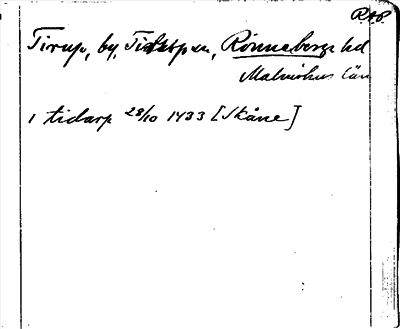 R.A.P.
Tirup, by, sn, Rönnebergs hd
Malmöhus län
i tidarp 28/10 1433 [Skåne]